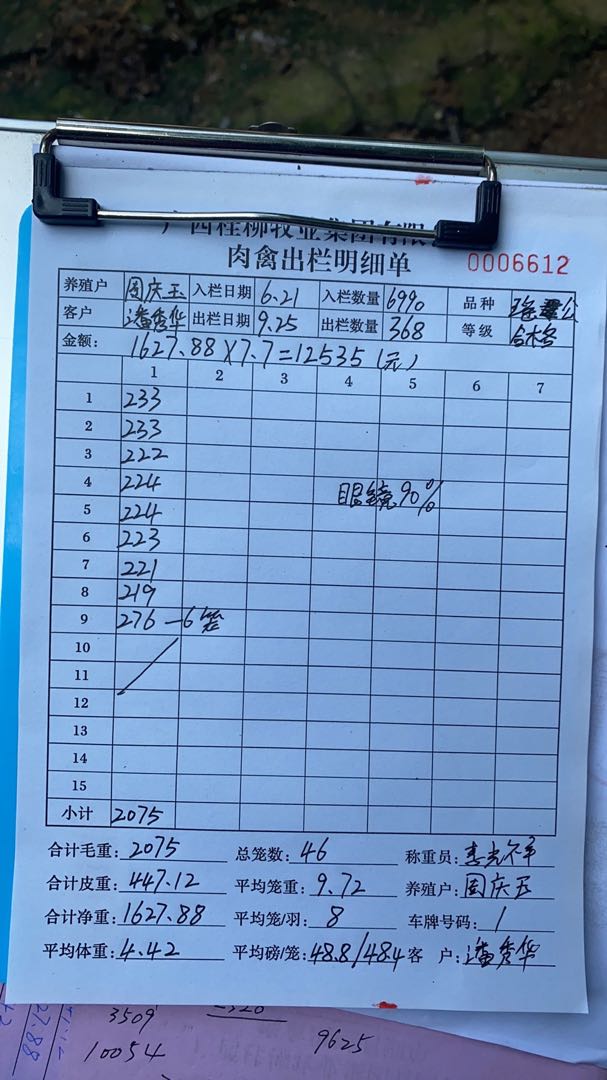 广西桂柳牧业集团有限
肉禽出栏明细单 0006612
养殖户 周庆玉 入栏日期 6.21 入栏数量 6990 品种 瑶鸡公
客户 潘秀华 出栏日期 9.25 出栏数量 368 等级 合格
金额: 1627.88×7.7=12535(元)
1 2 3 4 5 6 7
1 233
2 233
3 222
4 224 眼镜90%
5 224
6 223
7 221
8 219
9 276-6笼
10
11
12
13
14
15
小计 2075
合计毛重: 2075 总笼数: 46 称重员:
合计皮重: 447.12 平均笼重: 9.72 养殖户: 周庆玉
合计净重: 1627.88 平均笼/羽: 8 车牌号码: /
平均体重: 4.42 平均磅/笼: 48.8/48.4 客 户: 潘秀华
3509
10054
9625
27.88